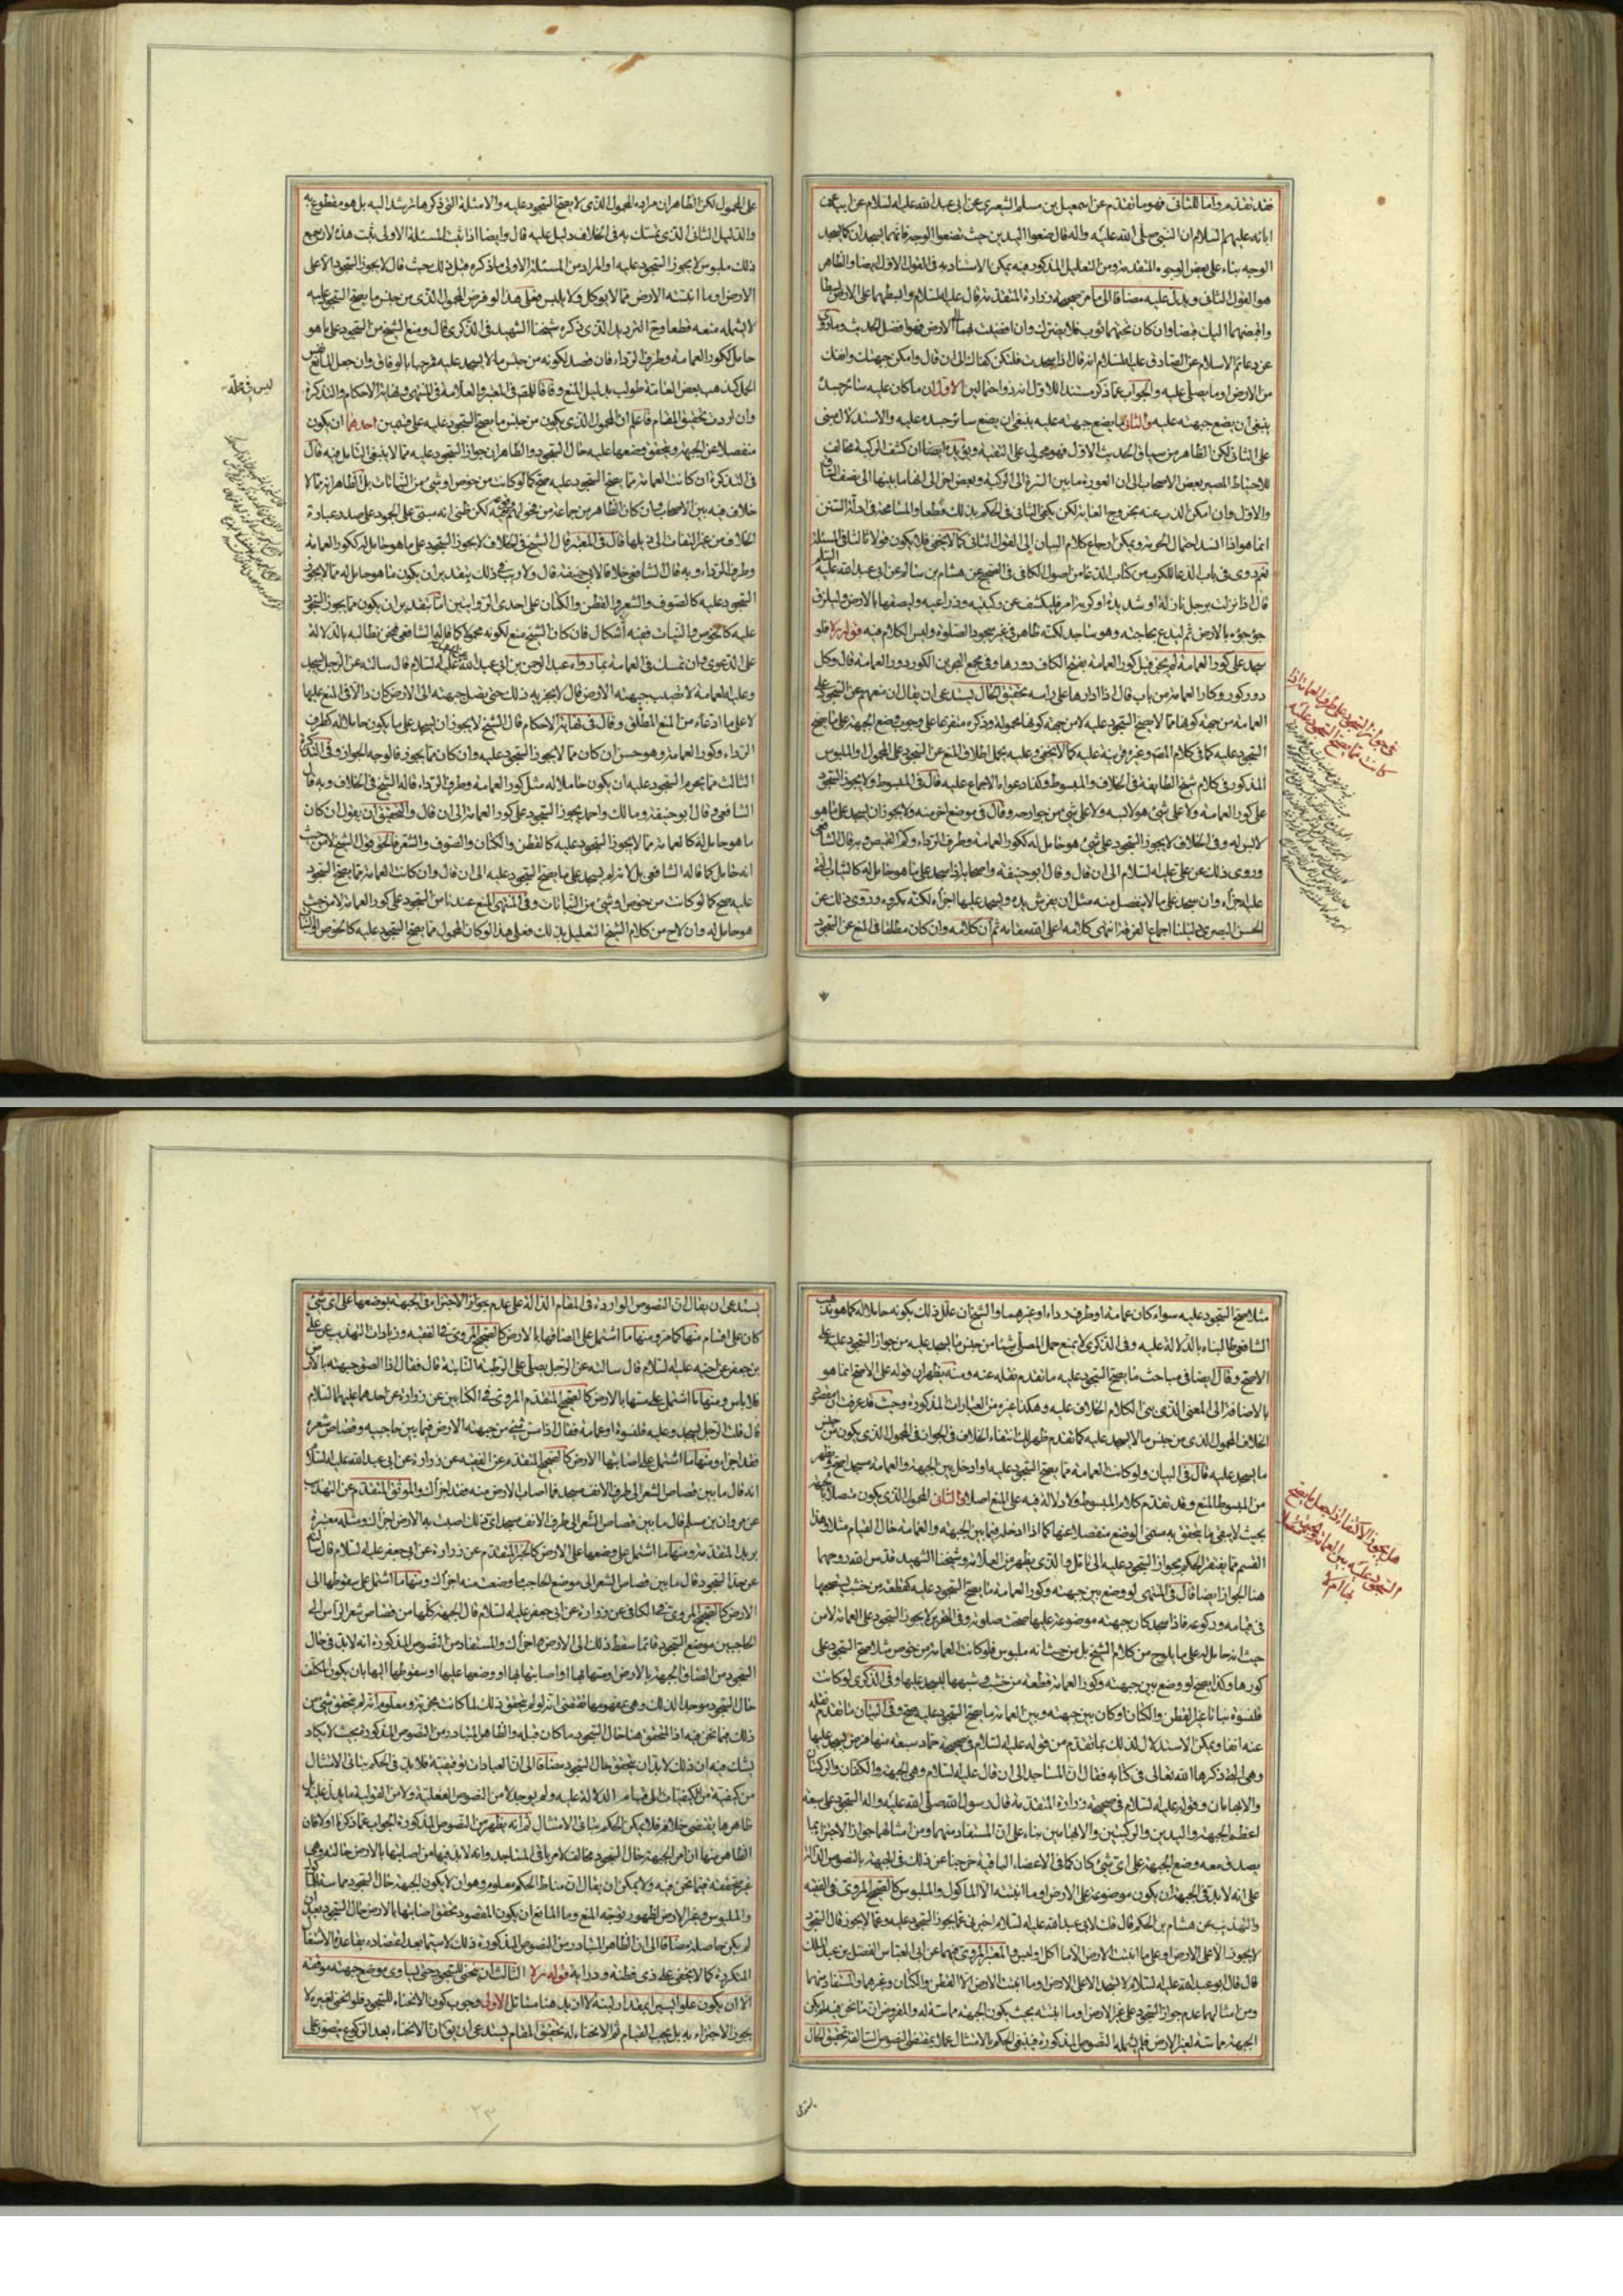 فقد تقدم واما للثانى فهو ما تقدم عن اسمعيل بن مسلم الشعيرى عن ابى عبد الله عليه السلام عن ابيه عن
ابائه عليهم السلام ان النبى صلى الله عليه واله قال ضعوا اليدين حيث تضعوا الوجه فانهما يسجدان كما يسجد
الوجه بناء على بعض الوجوه المتقدمة ومن التعليل المذكور فيه يمكن الاستناد به فى القول الاول ايضا والظاهر
هو القول الثانى ويدل عليه مضافا الى ما مر صحيحة زرارة المتقدمة قال عليه السلام وابسطهما على الارض بسطا
واقبضهما اليك قبضا وان كان تحتهما ثوب فلا يضرك وان افضيت بهما الى الارض فهو افضل الحديث وما روى
عن دعائم الاسلام عن الصادق عليه السلام انه قال اذا سجدت فلتكن كفاك الى ان قال وامكن جبهتك وانفك
من الارض او ما يصلى عليه والجواب عما ذكر مستندا للاول انه ذو احتمالين الاول ان ما كان عليه سائر جسده
ينبغى ان يضع جبهته عليه والثانى ما يضع جبهته عليه ينبغى ان يضع سائر جسده عليه والاستدلال مبنى
على الثانى لكن الظاهر من سياق الحديث الاول فهو محمول على التقية ويؤيده ايضا ان كشف الركبة مخالف
للاحتياط لمصير بعض الاصحاب الى ان العورة ما بين السرة الى الركبة وبعض اخر الى انها ما بينها الى نصف الساق
والاول وان امكن الذب عنه بخروج الغاية لكن يكفى الثانى فى الحكم بذلك قطعا والمسامحة فى ادلة السنن
انما هو اذا انسد احتمال الحرمة ويمكن ارجاع كلام البيان الى القول الثانى كما لا يخفى فلا يكون قولا ثالثا فى المسئلة
نعم روى فى باب الدعاء للكرب من كتاب الدعاء من اصول الكافى فى الصحيح عن هشام بن سالم عن ابى عبد الله عليه السلام
قال اذا نزلت برجل نازلة او شديدة او كربه امر فليكشف عن ركبتيه وذراعيه وليلصقها بالارض وليلزق
جؤجؤه بالارض ثم ليدع بحاجته وهو ساجد لكنه ظاهر فى غير سجود الصلوة وليس الكلام فيه قوله ره فلو
سجد على كور العمامة لم يجز قيل كور العمامة بفتح الكاف دورها وفى مجمع البحرين الكور دور العمامة قال وكل
دور كور وكار العمامة من باب قال اذا ادارها على راسه تحقيق الحال يستدعى ان يقال ان منعهم عن السجود على
العمامة من جهة كونها مما لا يصح السجود عليه لا من جهة كونها محمولة وذكره متفرعا على وجوب وضع الجبهة على ما يصح
السجود عليه كما فى كلام المصنف وغيره قرينة عليه كما لا يخفى وعليه يحمل اطلاق المنع عن السجود على المحمول او الملبوس
المذكور فى كلام شيخ الطايفة فى الخلاف والمبسوط وكذا دعواه الاجماع عليه قال فى المبسوط ولا يجوز السجود
على كور العمامة ولا على شئ هو لابسه ولا على شئ من جوارحه وقال فى موضع اخر منه ولا يجوز ان يسجد على ما هو
لابس له وفى الخلاف لا يجوز السجود على شئ هو حامل له ككور العمامة وطرف الرداء وكم القميص وبه قال الشافعى
وروى ذلك عن على عليه السلام الى ان قال وقال ابو حنيفة واصحابه اذا سجد على ما هو حامل له كالثياب التى
عليه اجزأه وان سجد على ما لا ينفصل منه مثل ان يفرش يده ويسجد عليها اجزأه لكنه مكروه وروى ذلك عن
الحسن البصرى دليلنا اجماع الفرقة انتهى كلامه اعلى الله مقامه ثم ان كلامه وان كان مطلقا فى المنع عن السجود
فى جواز السجود على طرف العمامة اذا
كانت مما يصح السجود عليه
على المحمول لكن الظاهر ان مراده المحمول الذى لا يصح السجود عليه والامثلة التى ذكرها ترشد اليه بل هو مقطوع به
والدليل الثانى الذى تمسك به فى الخلاف دليل عليه قال وايضا اذا ثبت المسئلة الاولى ثبت هذه لان جميع
ذلك ملبوس لا يجوز السجود عليه او المراد من المسئلة الاولى ما ذكره قبل ذلك حيث قال لا يجوز السجود الا على
الارض او ما انبتته الارض مما لا يوكل ولا يلبس فعلى هذا لو فرض المحمول الذى من جنس ما يصح السجود عليه
لا يشمله منعه قطعا وح الترديد الذى ذكره شيخنا الشهيد فى الذكرى قال ومنع الشيخ من السجود على ما هو
حامل ككور العمامة وطرف الرداء فان قصد لكونه من جنس ما لا يسجد عليه فمرحبا بالوفاق وان جعل المانع نفس
الحمل كمذهب بعض العامة طولب بدليل المنع وفاقا للمصنف فى المعتبر والعلامة فى المنتهى ونهاية الاحكام والتذكرة
وان اردت تحقيق المقام فاعلم ان المحمول الذى يكون من جنس ما يصح السجود عليه على قسمين احدهما ان يكون
منفصلا عن الجبهة ويتحقق وضعها عليه حال السجود والظاهر ان جواز السجود عليه مما لا ينبغى التامل فيه قال
فى التذكرة ان كانت العمامة مما يصح السجود عليه صح كما لو كانت من خوص او شئ من النباتات بل الظاهر انه مما لا
خلاف فيه بين الاصحاب وان كان الظاهر من جماعة من فحولهم تحققه لكن ظنى انه مبنى على الجمود على صدر عبارة
الخلاف من غير التفات الى ذيلها قال فى المعتبر قال الشيخ فى الخلاف لا يجوز السجود على ما هو حامل له ككور العمامة
وطرف الرداء وبه قال الشافعى خلافا لابى حنيفة قال ولا ريب فى ذلك بتقدير ان يكون ما هو حامل له مما لا يجوز
السجود عليه كالصوف والشعر والقطن والكتان على احدى الروايتين اما بتقدير ان يكون مما يجوز السجود
عليه كالخوص والنبات ففيه اشكال فان كان الشيخ منع لكونه محمولا كما قاله الشافعى فنحن نطالبه بالدلالة
على الدعوى وان تمسك فى العمامة بما رواه عبد الرحمن بن ابى عبد الله عليه السلام قال سالته عن الرجل يسجد
وعليه العمامة لا تصيب جبهته الارض قال لا يجزيه ذلك حتى يصل جبهته الى الارض كان دالا فى المنع عليها
لا على ما ادعاه من المنع المطلق وقال فى نهاية الاحكام قال الشيخ لا يجوز ان يسجد على ما يكون حاملا له كطرف
الرداء وكور العمامة وهو حسن ان كان مما لا يجوز السجود عليه وان كان مما يجوز فالوجه الجواز وفى التذكرة
الثالث مما يحرم السجود عليه ان يكون حاملا له مثل كور العمامة وطرف الرداء قاله الشيخ فى الخلاف وبه قال
الشافعى وقال ابو حنيفة ومالك واحمد يجوز السجود على كور العمامة الى ان قال والتحقيق ان يقول ان كان
ما هو حامل له كالعمامة مما لا يجوز السجود عليه كالقطن والكتان والصوف والشعر فالحق قول الشيخ لا من حيث
انه حامل كما قاله الشافعى بل لانه لم يسجد على ما يصح السجود عليه الى ان قال وان كانت العمامة مما يصح السجود
عليه صح كما لو كانت من خوص او شئ من النباتات وفى المنتهى المنع عندنا من السجود على كور العمامة لا من حيث
هو حامل له وان لاح من كلام الشيخ التعليل بذلك فعلى هذا لو كان المحمول مما يصح السجود عليه كالخوص والنبات
مثلا صح السجود عليه سواء كان عمامة او طرف رداء او غيرهما والشيخ ان علل ذلك بكونه حاملا له كما هو مذهب
الشافعى طالبناه بالدلالة عليه وفى الذكرى لا يمنع حمل المصلى شيئا من جنس ما يسجد عليه من جواز السجود عليه على
الاصح وقال ايضا فى مباحث ما يصح السجود عليه ما تقدم نقله عنه ومنه يظهر ان قوله على الاصح انما هو
بالاضافة الى المعنى الذى بنى الكلام الخلاف عليه وهكذا غيره من العبارات المذكورة وحيث قد عرفت ان مقتضى
الخلاف المحمول الذى من جنس ما لا يسجد عليه كما تقدم ظهر لك انتفاء الخلاف فى الجواز فى المحمول الذى يكون من جنس
ما يسجد عليه قال فى البيان ولو كانت العمامة مما يصح السجود عليه او ادخل بين الجبهة والعمامة مسجد اصح وظهر
من المبسوط المنع وقد تقدم كلام المبسوط ولا دلالة فيه على المنع اصلا والثانى المحمول الذى يكون متصلا بالجبهة
بحيث لا يبقى ما يتحقق به مسمى الوضع منفصلا عنها كما اذا ادخله فيما بين الجبهة والعمامة حال القيام مثلا وهذا
القسم مما يفتقر الحكم بجواز السجود عليه الى تامل والذى يظهر من العلامة وشيخنا الشهيد قدس الله روحهما
هنا الجواز ايضا قال فى المنتهى لو وضع بين جبهته وكور العمامة ما يصح السجود عليه كقطعة من خشب يصحبها
فى قيامه وركوعه فاذا سجد كان جبهته موضوعة عليها صحت صلوته وفى التحرير لا يجوز السجود على العمامة لا من
حيث انه حامل له على ما يلوح من كلام الشيخ بل من حيث انه ملبوس فلو كانت العمامة من خوص مثلا صح السجود على
كورها وكذا يصح لو وضع بين جبهته وكور العمامة قطعة من خشب وشبهها ليسجد عليها وفى الذكرى لو كانت
قلنسوة نباتا غير القطن والكتان او كان بين جبهته وبين العمامة ما يصح السجود عليه صح وفى البيان ما تقدم نقله
عنه انفا ويمكن الاستدلال لذلك بما تقدم من قوله عليه السلام فى صحيحة حماد سبعة منها فرض يسجد عليها
وهى التى ذكرها الله تعالى فى كتابه فقال ان المساجد الى ان قال عليه السلام وهى الجبهة والكفان والركبتان
والابهامان وقوله عليه السلام فى صحيحة زرارة المتقدمة قال رسول الله صلى الله عليه واله السجود على سبعة
اعظم الجبهة واليدين والركبتين والابهامين بناء على ان المستفاد منهما ومن امثالهما جواز الاجتزاء بما
يصدق معه وضع الجبهة على اى شئ كان كما فى الاعضاء الباقية خرجنا عن ذلك فى الجبهة بالنصوص الدالة
على انه لا بد فى الجبهة ان يكون موضوعة على الارض او ما انبتته الا الماكول والملبوس كالصحيح المروى فى الفقيه
والتهذيب عن هشام بن الحكم قال قلت لابى عبد الله عليه السلام اخبرنى عما يجوز السجود عليه وعما لا يجوز قال السجود
لا يجوز الا على الارض او على ما انبتت الارض الا ما اكل او لبس والمعتبر المروى فيهما عن ابى العباس الفضل بن عبد الملك
قال قال ابو عبد الله عليه السلام لا يسجد الا على الارض او ما انبتت الارض الا القطن والكتان وغيرهما والمستفاد منهما
ومن امثالهما عدم جواز السجود على غير الارض او ما انبتته بحيث يكون الجبهة مماسة له والمفروض ان ما نحن فيه لم يكن
الجبهة مماسة لغير الارض فلم يشمله النصوص المذكورة فينبغى الحكم بالامتثال عملا بمقتضى النصوص السالفة تحقيق الحال
يستدعى
السجود عليه بين العمامة والجبهة
يستدعى ان يقال ان النصوص الواردة فى المقام الدالة على عدم جواز الاجتزاء فى الجبهة بوضعها على اى شئ
كان على اقسام منها كما مر ومنها ما اشتمل على الصاقها بالارض كالصحيح المروى فى الفقيه وزيادات التهذيب عن على
بن جعفر عن اخيه عليه السلام قال سالته عن الرجل يصلى على الرطبة النابتة قال فقال اذا الصق جبهته بالارض
فلا باس ومنها ما اشتمل على مسها بالارض كالصحيح المتقدم المروى فى الكتابين عن زرارة عن احدهما عليهما السلام
قال قلت الرجل يسجد وعليه قلنسوة او عمامة فقال اذا مس شئ من جبهته الارض فيما بين حاجبيه وقصاص شعره
فقد اجزأ ومنها ما اشتمل على اصابتها الارض كالصحيح المتقدم عن الفقيه عن زرارة عن ابى عبد الله عليه السلام
انه قال ما بين قصاص الشعر الى طرف الانف مسجد فما اصاب الارض منه فقد اجزأك والموثق المتقدم عن التهذيب
عن مروان بن مسلم قال ما بين قصاص الشعر الى طرف الانف مسجد اى ذلك اصبت به الارض اجزأك ومثله معتبرة
بريد المتقدمة ومنها ما اشتمل على وضعها على الارض كالخبر المتقدم عن زرارة عن ابى جعفر عليه السلام قال سالته
عن حد السجود قال ما بين قصاص الشعر الى موضع الحاجب ما وضعت منه اجزأك ومنها ما اشتمل على سقوطها الى
الارض كالصحيح المروى فى الكافى عن زرارة عن ابى جعفر عليه السلام قال الجبهة كلها من قصاص شعر الراس الى
الحاجبين موضع السجود فايما سقط ذلك الى الارض اجزأك والمستفاد من النصوص المذكورة انه لا بد فى حال
السجود من الصاق الجبهة بالارض او مسها بها او اصابتها بها او وضعها عليها او سقوطها اليها بان يكون المكلف
حال السجود موجدا لذلك وهى بمفهومها تقتضى انه لو لم يتحقق ذلك لما كانت مجزية ومعلوم انه لم يتحقق شئ من
ذلك فيما نحن فيه اذ المتحقق هنا حال السجود ما كان قبله والظاهر المتبادر من النصوص المذكورة بحيث لا يكاد
يشك فيه ان ذلك لا بد ان يتحقق حال السجود مضافا الى ان العبادات توقيفية فلا بد فى الحكم بنا فى الامتثال
من كيفية من الكيفيات الى قيام الدلالة عليه ولم يوجد لا من النصوص الفعلية ولا من القولية ما يدل عليه بل
ظاهرها يقتضى خلافه فلا يمكن الحكم بنا فى الامتثال ثم انه يظهر من النصوص المذكورة الجواب عما ذكرنا اولا فان
الظاهر منها ان امر الجبهة حال السجود مخالف لامر باقى المساجد وانه لا بد فيها من اصابتها بالارض حالته وهى
غير متحققة فيما نحن فيه ولا يمكن ان يقال ان مناط الحكم معلوم وهو ان لا يكون الجبهة حال السجود مماسة للماكول
والملبوس وغير الارض لظهور توجه المنع وما المانع ان يكون المقصود تحقق اصابتها بالارض حال السجود بعد ان
لم يكن حاصلة مضافا الى ان الظاهر المتبادر من النصوص المذكورة ذلك لا سيما بعد اعتضاده بقاعدة الاشتغال
المتكررة كما لا يخفى على ذى فطنة ودراية قوله ره الثالث ان ينحنى للسجود حتى يساوى موضع جبهته موقفه
الا ان يكون علوا يسيرا بمقدار لبنة لا ازيد هنا مسائل الاولى وجوب كون الانحناء للسجود فلو انحنى لغيره لا
يجوز الاجتزاء به بل يجب القيام ثم الانحناء له تحقيق المقام يستدعى ان يق ان الانحناء بعد الركوع يتصور على